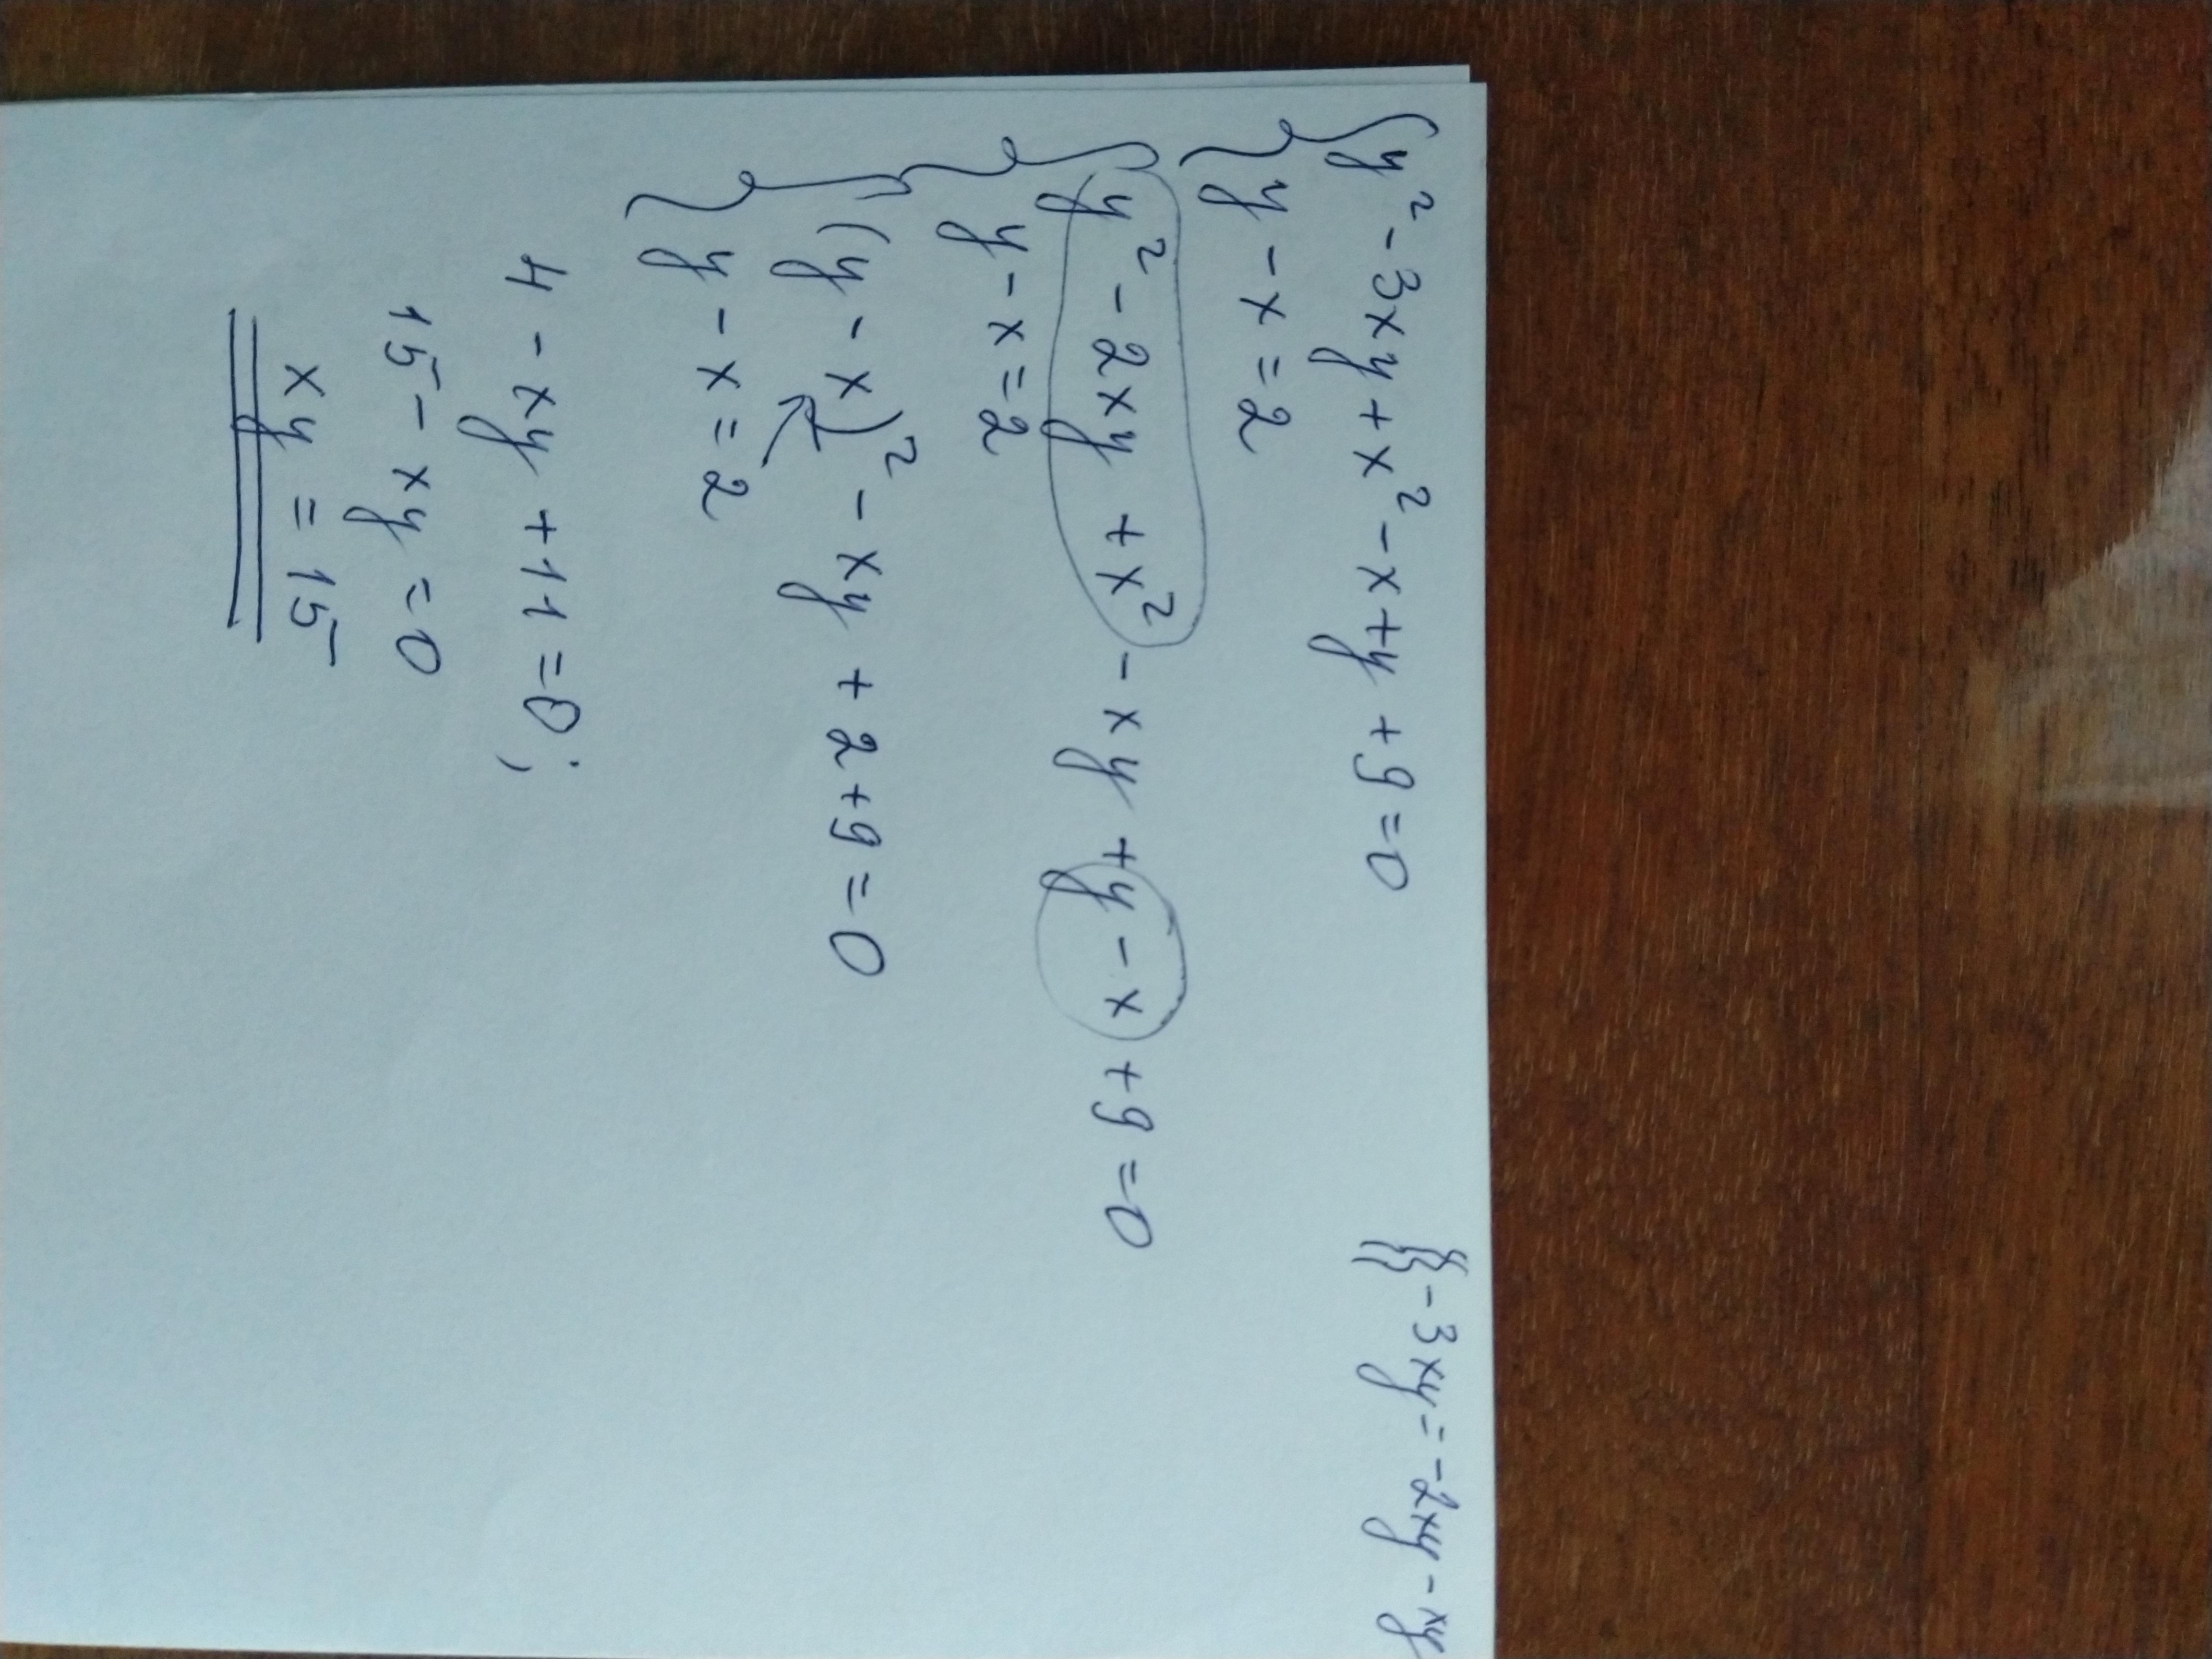 y² - 3xy + x² - x + y + 9 = 0
y - x = 2
y² - 2xy + x² - xy + y - x + 9 = 0
y - x = 2
(y - x)² - xy + 2 + 9 = 0
y - x = 2
4 - xy + 11 = 0;
15 - xy = 0
xy = 15
- 3xy = - 2xy - xy